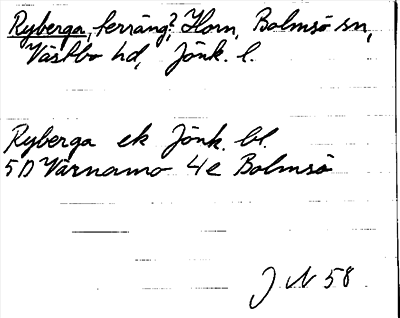 Ryberga, terräng? Horn, Bolmsö sn,
Västbo hd, Jönk. l.
Ryberga ek Jönk. bl.
5D Värnamo 4e Bolmsö
J N 58